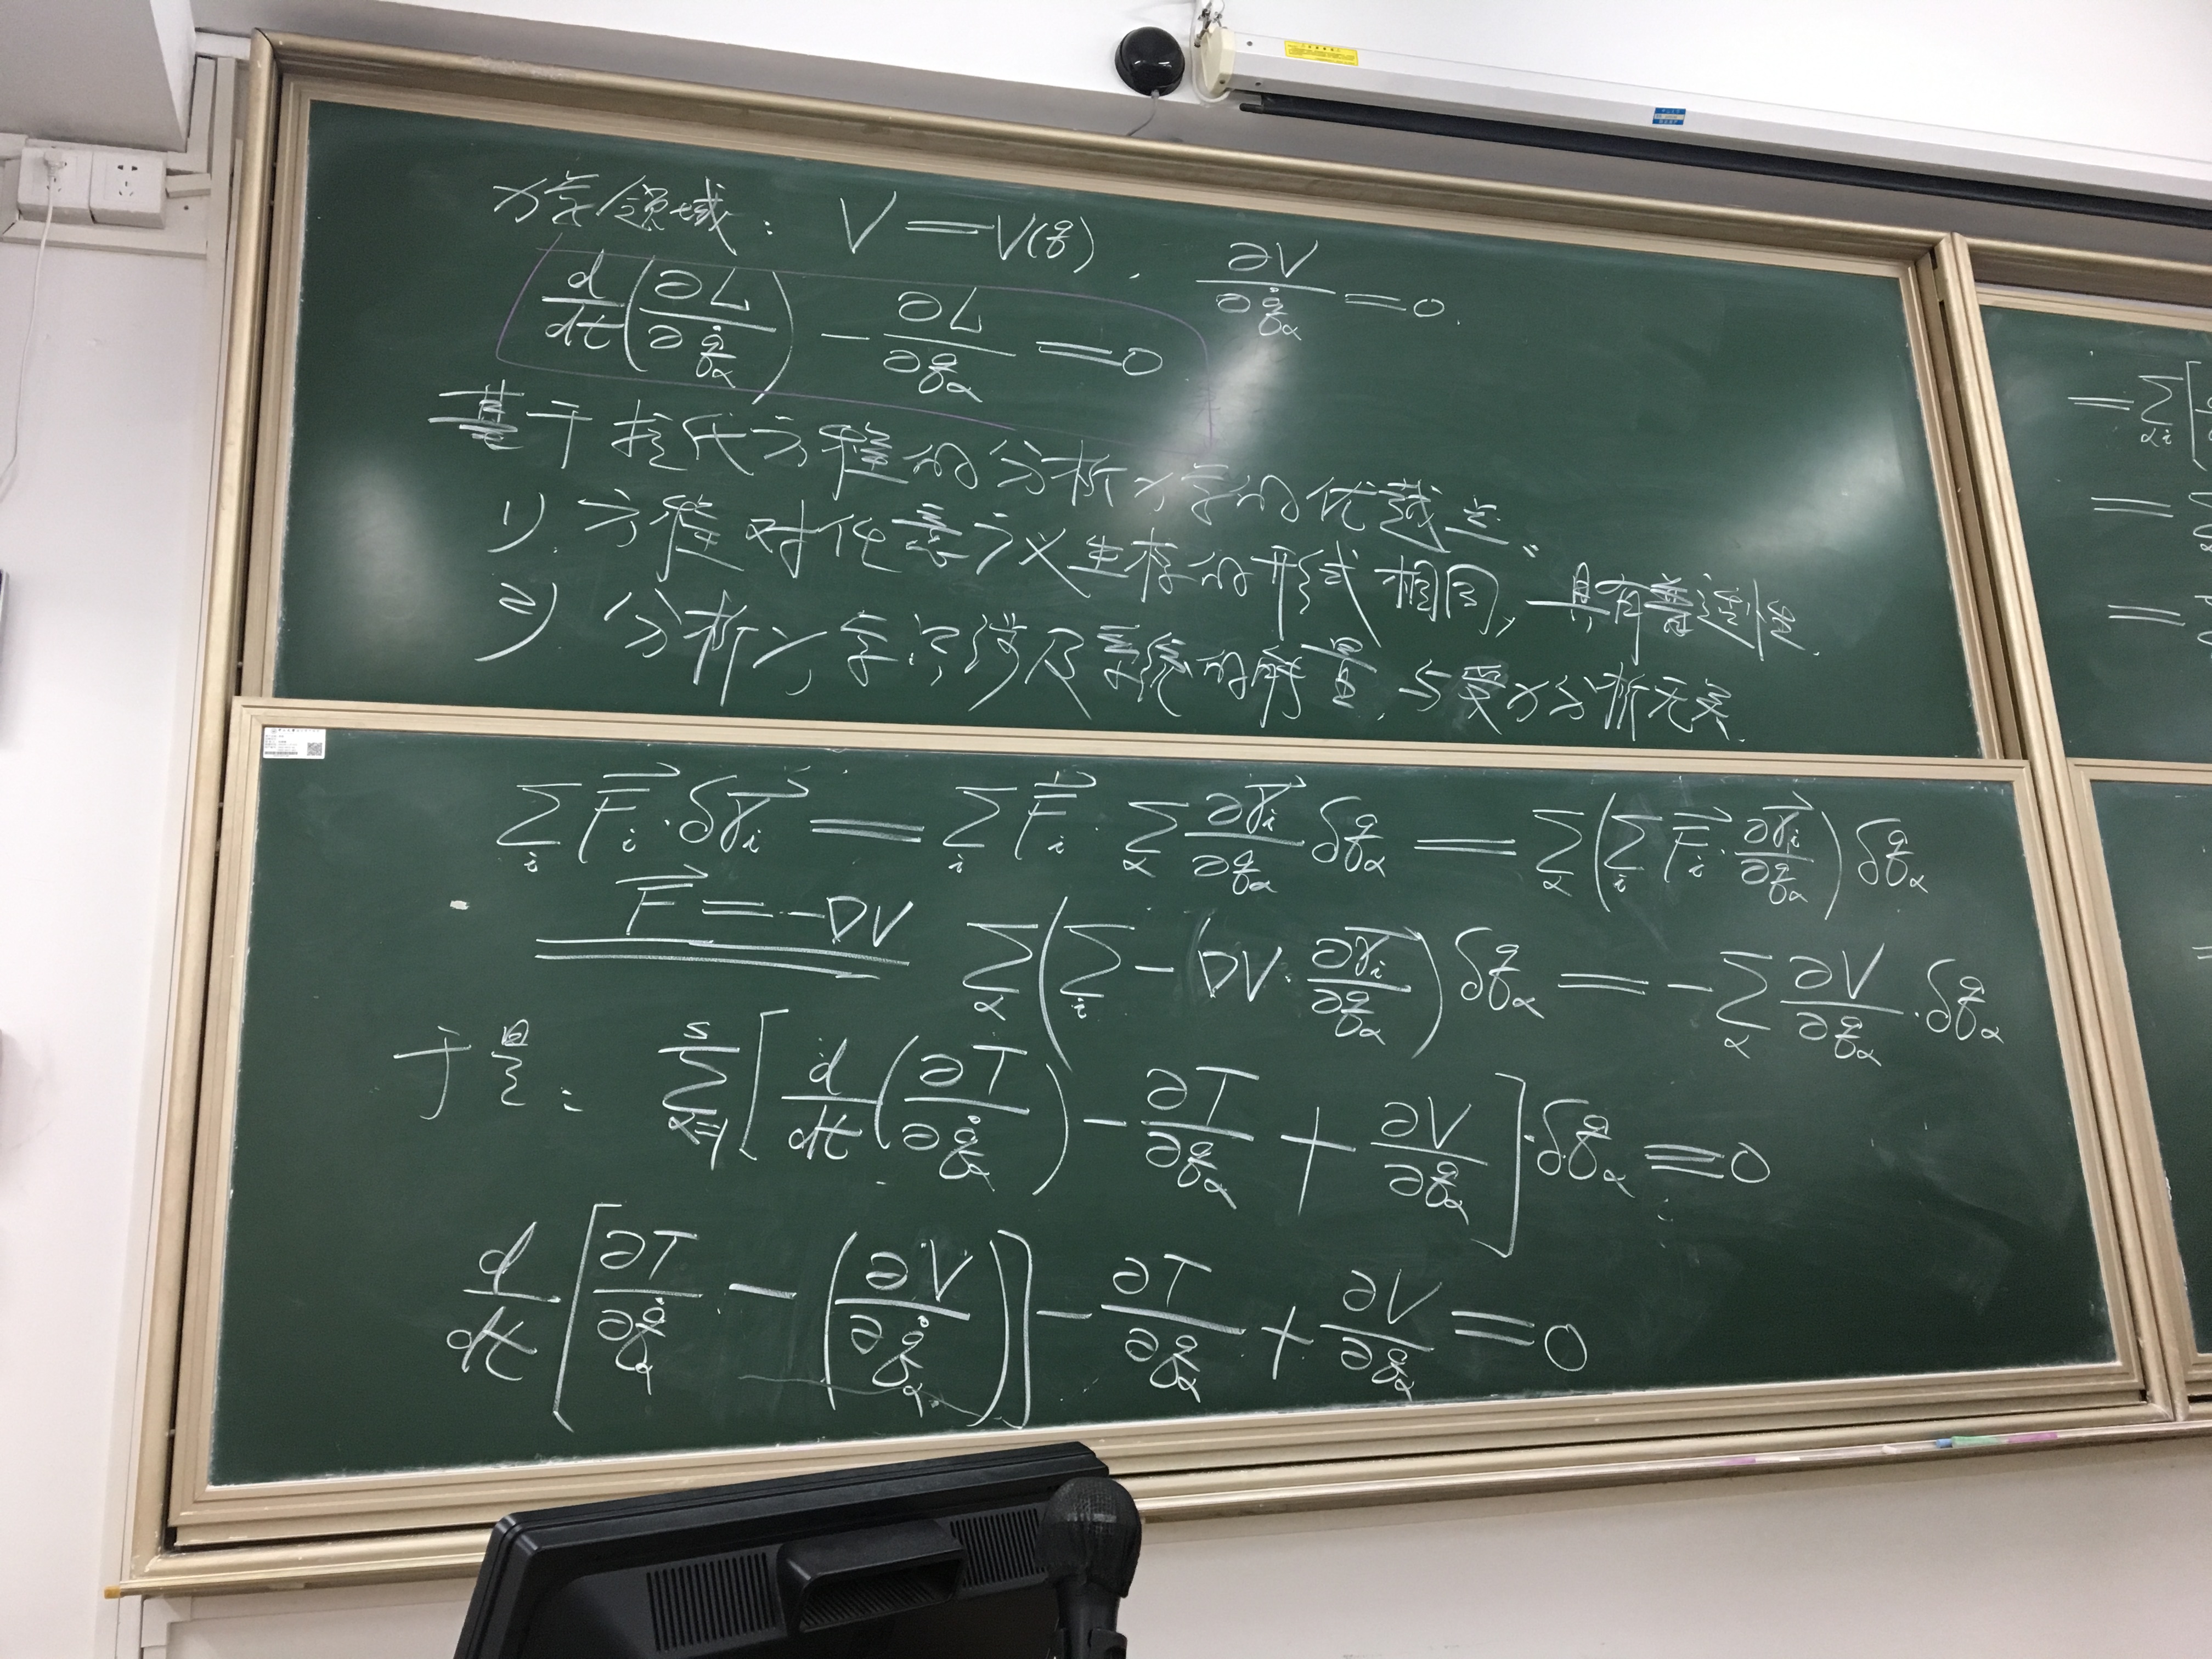 力学领域: V = V(q), ∂V/∂q̇_α = 0.
d/dt(∂L/∂q̇_α) - ∂L/∂q_α = 0
基于拉氏方程的分析力学的优越点、
1). 方程对任意广义坐标的形式相同, 具有普适性.
2) 分析力学只涉及系统的能量, 与受力分析无关.
∑_i F⃗_i · δr⃗_i = ∑_i F⃗_i · ∑_α ∂r⃗_i/∂q_α δq_α = ∑_α (∑_i F⃗_i · ∂r⃗_i/∂q_α) δq_α
F⃗ = -∇V ∑_α (∑_i - ∇V · ∂r⃗_i/∂q_α) δq_α = - ∑_α ∂V/∂q_α · δq_α
于是: ∑_{α=1}^{s} [d/dt(∂T/∂q̇_α) - ∂T/∂q_α + ∂V/∂q_α] · δq_α = 0
d/dt [∂T/∂q̇_α - (∂V/∂q̇_α)] - ∂T/∂q_α + ∂V/∂q_α = 0